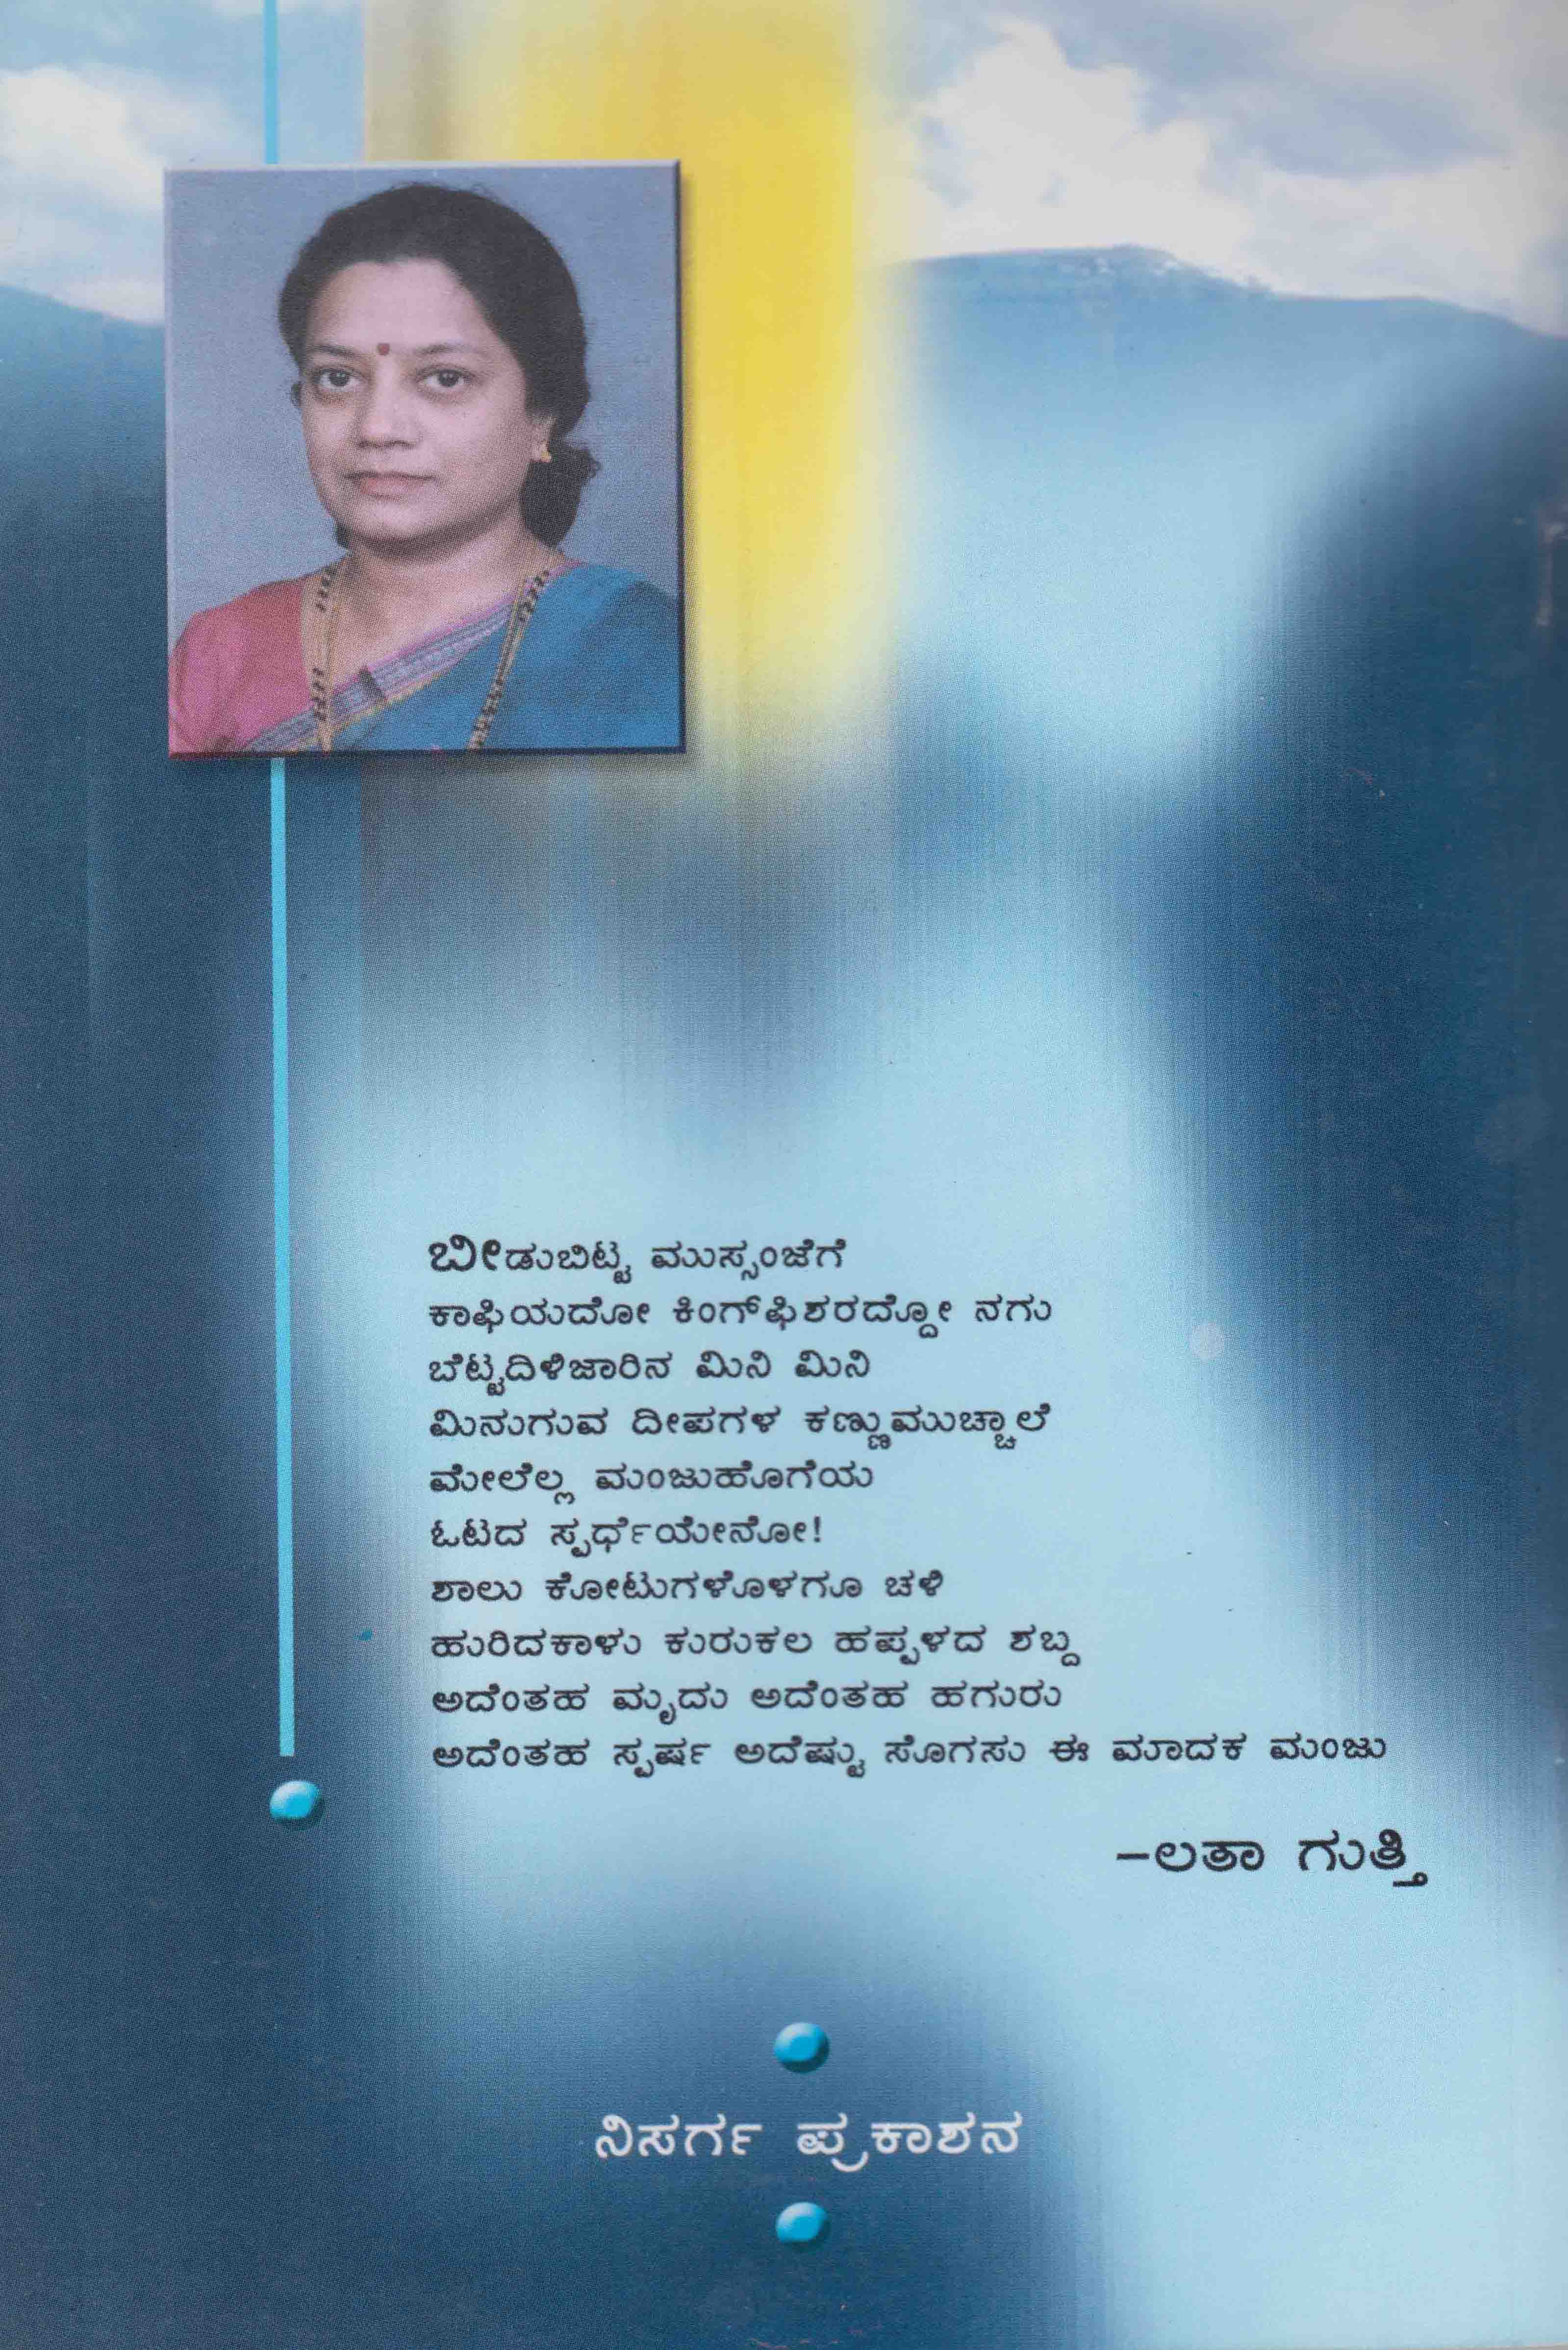 ಬೀಡುಬಿಟ್ಟ ಮುಸ್ಸಂಜೆಗೆ
ಕಾಫಿಯದೋ ಕಿಂಗ್‌ಫಿಶರದ್ದೋ ನಗು
ಬೆಟ್ಟದಿಳಿಜಾರಿನ ಮಿನಿ ಮಿನಿ
ಮಿನುಗುವ ದೀಪಗಳ ಕಣ್ಣುಮುಚ್ಚಾಲೆ
ಮೇಲೆಲ್ಲ ಮಂಜುಹೊಗೆಯ
ಓಟದ ಸ್ಪರ್ಧೆಯೇನೋ!
ಶಾಲು ಕೋಟುಗಳೊಳಗೂ ಚಳಿ
ಹುರಿದಕಾಳು ಕುರುಕಲ ಹಪ್ಪಳದ ಶಬ್ದ
ಅದೆಂತಹ ಮೃದು ಅದೆಂತಹ ಹಗುರು
ಅದೆಂತಹ ಸ್ಪರ್ಷ ಅದೆಷ್ಟು ಸೊಗಸು ಈ ಮಾದಕ ಮಂಜು
–ಲತಾ ಗುತ್ತಿ
ನಿಸರ್ಗ ಪ್ರಕಾಶನ